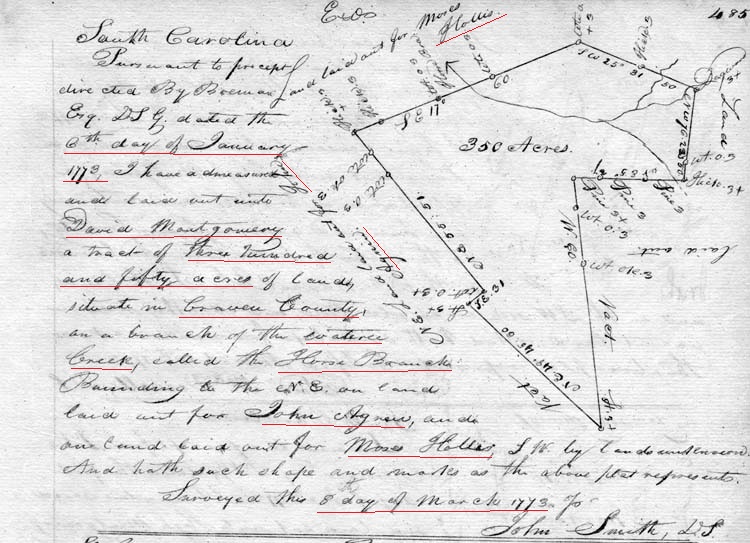 Exds.
485
South Carolina
Pursuant to precept
directed By Breman
Esq. D S G. dated the
6th day of January
1773, I have admeasured
and laid out unto
David Montgomery
a tract of three hundred
and fifty acres of land,
situate in Craven County,
on a branch of the wateree
Creek, called the Horse Branch
Bounding to the N.E. on land
laid out for John Agnew, and
on land laid out for Moses Hollis, S W. by lands unknown.
And hath such shape and marks as the above plat represents.
Surveyed this 8 day of March 1773. Jo
John Smith, D.S.
Land laid out for Moses
Hollis.
350 Acres.
S W 25° 31
50
60.
Land
laid out
Hick. 3+
wt. 0.3
Pine 3
Pine 3+
wt 0.3
W. 60.
Vact
Vact
N.E. Land laid out for John
Agnew
N E 55. 51.
N E 49. 45. 00